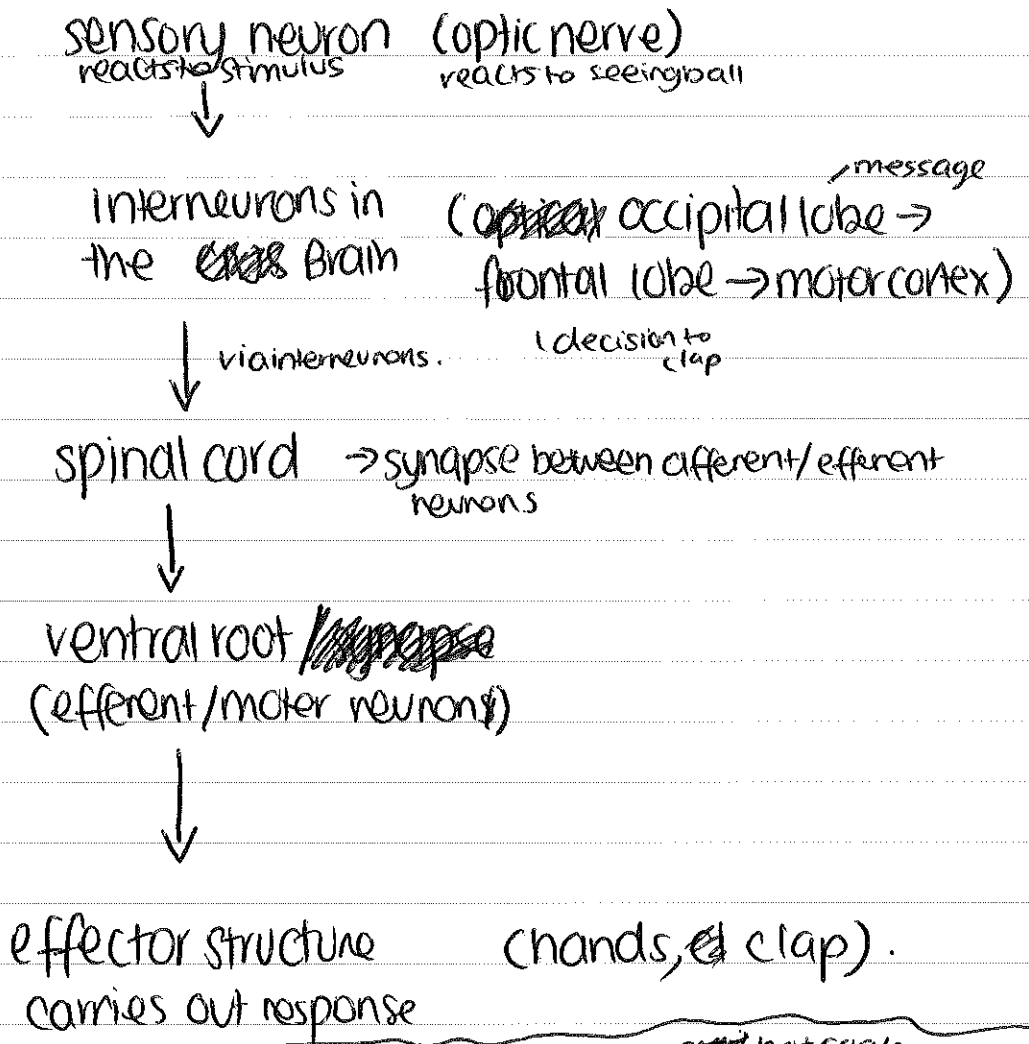 sensory neuron (optic nerve)
reacts to stimulus reacts to seeing ball
message
interneurons in (occipital lobe →
the Brain frontal lobe → motor cortex)
via interneurons. decision to
clap
spinal cord → synapse between afferent/efferent
neurons
ventral root /
(efferent/moter neurons)
effector structure (hands, clap).
carries out response